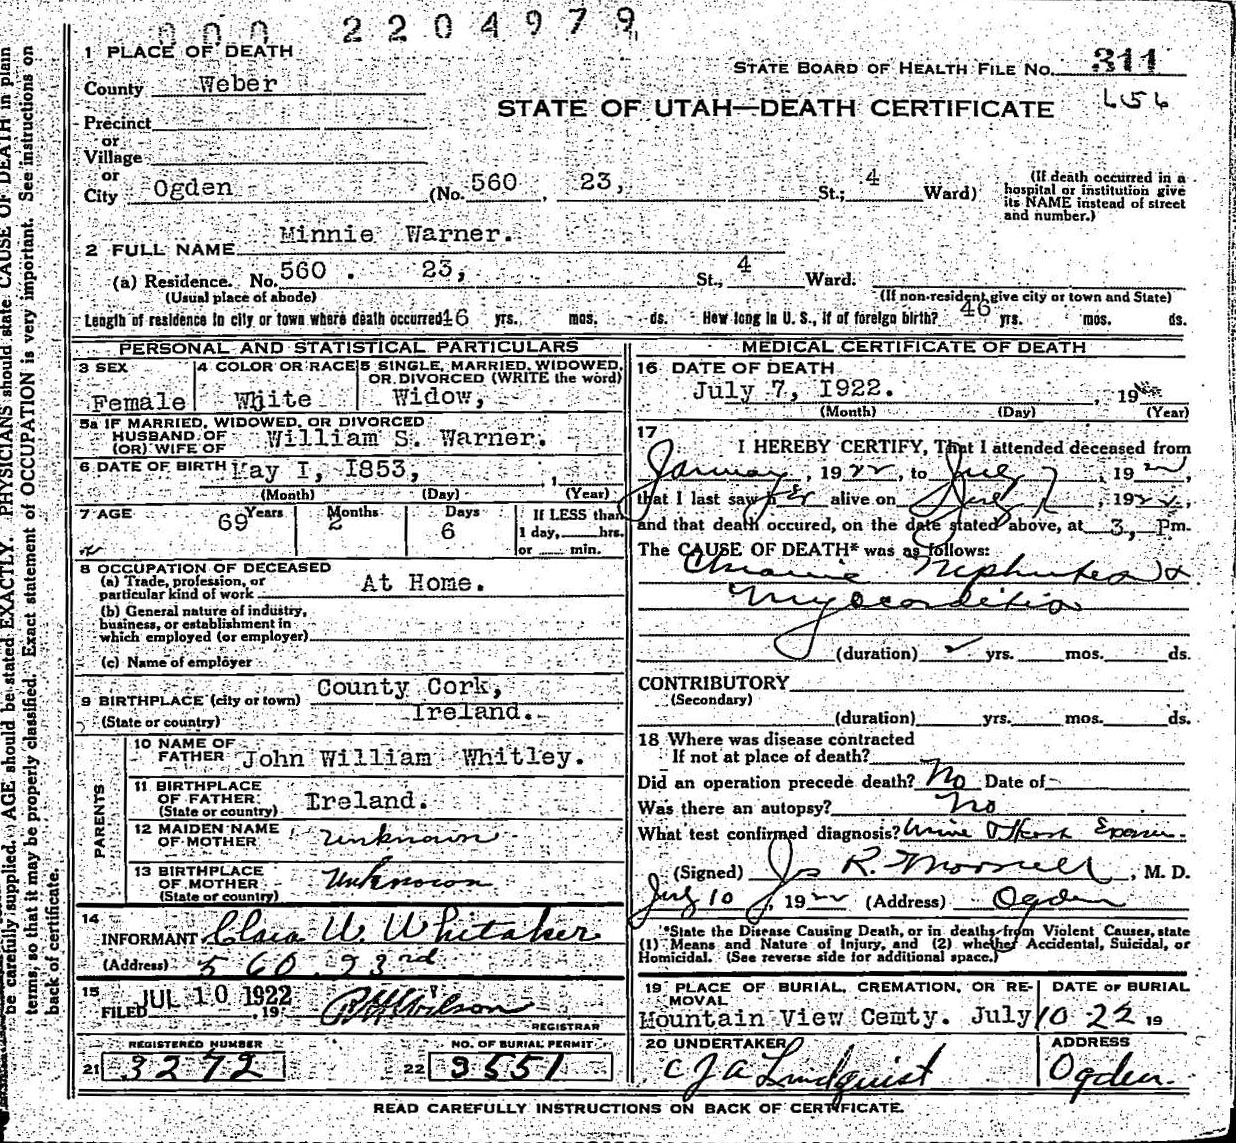 000 2204979
1 PLACE OF DEATH
STATE BOARD OF HEALTH FILE No. 311
County Weber
656
STATE OF UTAH—DEATH CERTIFICATE
Precinct
or
Village
or
City Ogden (No. 560 . 23, St.; 4 Ward)
(If death occurred in a hospital or institution give its NAME instead of street and number.)
2 FULL NAME Minnie Warner.
(a) Residence. No. 560 . 23, St., 4 Ward.
(Usual place of abode) (If non-resident give city or town and State)
Length of residence in city or town where death occurred 46 yrs. mos. ds. How long in U. S., if of foreign birth? 46 yrs. mos. ds.
PERSONAL AND STATISTICAL PARTICULARS
3 SEX Female
4 COLOR OR RACE White
5 SINGLE, MARRIED, WIDOWED, OR DIVORCED (WRITE the word) Widow,
5a IF MARRIED, WIDOWED, OR DIVORCED
HUSBAND OF
(OR) WIFE OF William S. Warner.
6 DATE OF BIRTH May I, I853,
(Month) (Day) (Year)
7 AGE 69 Years 2 Months 6 Days If LESS than 1 day, hrs. or min.
8 OCCUPATION OF DECEASED
(a) Trade, profession, or particular kind of work At Home.
(b) General nature of industry, business, or establishment in which employed (or employer)
(c) Name of employer
9 BIRTHPLACE (city or town) County Cork,
(State or country) Ireland.
PARENTS
10 NAME OF FATHER John William Whitley.
11 BIRTHPLACE OF FATHER (State or country) Ireland.
12 MAIDEN NAME OF MOTHER Unknown
13 BIRTHPLACE OF MOTHER (State or country) Unknown
14
INFORMANT W. Whitaker
(Address) 560 23rd
15
FILED JUL 10 1922, 19 Wilson
REGISTRAR
REGISTERED NUMBER
21 3272
NO. OF BURIAL PERMIT
22 3551
MEDICAL CERTIFICATE OF DEATH
16 DATE OF DEATH
July 7, I922. , 19
(Month) (Day) (Year)
17
I HEREBY CERTIFY, That I attended deceased from
January, 1922, to July 7, 1922,
that I last saw her alive on July 7, 1922,
and that death occured, on the date stated above, at 3, Pm.
The CAUSE OF DEATH* was as follows:
Chronic Nephritis &
Myocarditis
(duration) yrs. mos. ds.
CONTRIBUTORY
(Secondary)
(duration) yrs. mos. ds.
18 Where was disease contracted
If not at place of death?
Did an operation precede death? No Date of
Was there an autopsy? No
What test confirmed diagnosis? Urine
(Signed) R. , M. D.
July 10, 1922 (Address) Ogden
*State the Disease Causing Death, or in deaths from Violent Causes, state
(1) Means and Nature of Injury, and (2) whether Accidental, Suicidal, or
Homicidal. (See reverse side for additional space.)
19 PLACE OF BURIAL, CREMATION, OR REMOVAL DATE OF BURIAL
Mountain View Cemty. July 10 22 19
20 UNDERTAKER Lindquist
ADDRESS Ogden
READ CAREFULLY INSTRUCTIONS ON BACK OF CERTIFICATE.
be carefully supplied. AGE should be stated EXACTLY. PHYSICIANS should state CAUSE OF DEATH in plain
terms, so that it may be properly classified. Exact statement of OCCUPATION is very important. See instructions on
back of certificate.